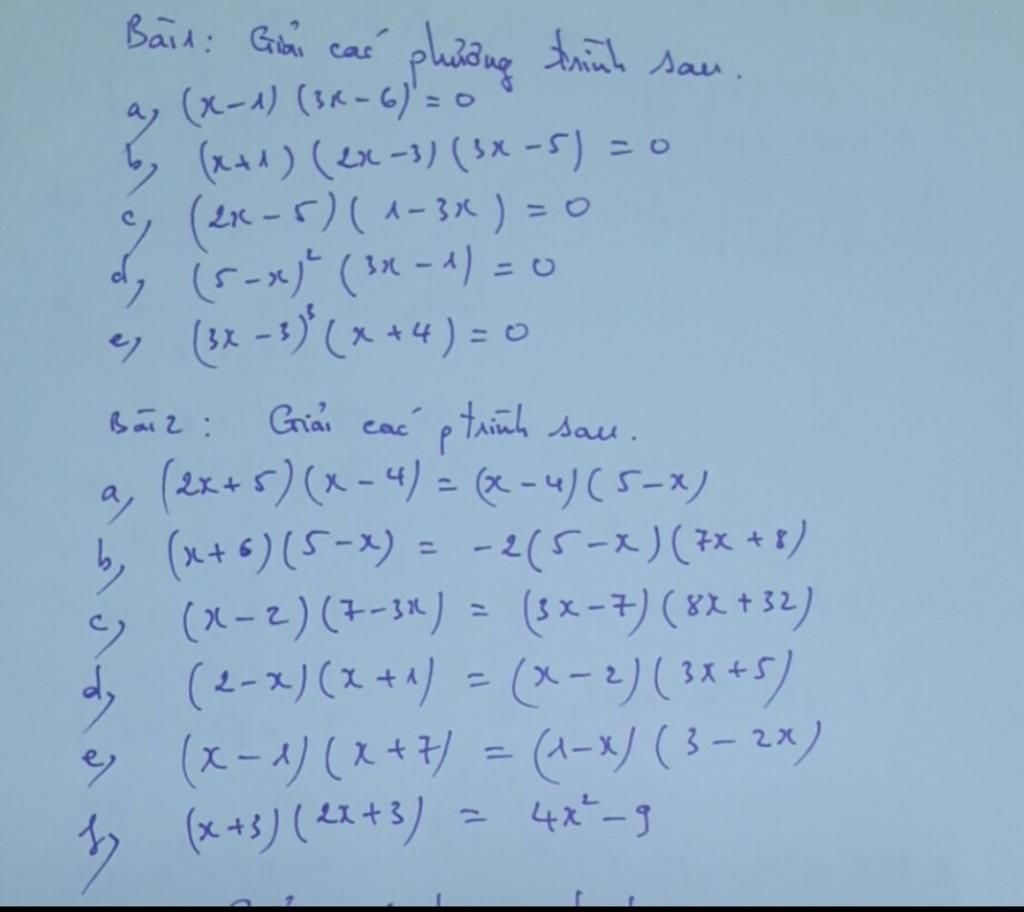 Bài 1: Giải các phương trình sau.
a, (x-1) (3x-6) = 0
b, (x+1) (2x-3) (3x-5) = 0
c, (2x-5) (1-3x) = 0
d, (5-x)² (3x-1) = 0
e, (3x-3)³ (x+4) = 0
Bài 2: Giải các ptrình sau.
a, (2x+5)(x-4) = (x-4)(5-x)
b, (x+6)(5-x) = -2(5-x)(7x+8)
c, (x-2)(7-3x) = (3x-7)(8x+32)
d, (2-x)(x+1) = (x-2)(3x+5)
e, (x-1)(x+7) = (1-x)(3-2x)
f, (x+3)(2x+3) = 4x²-9